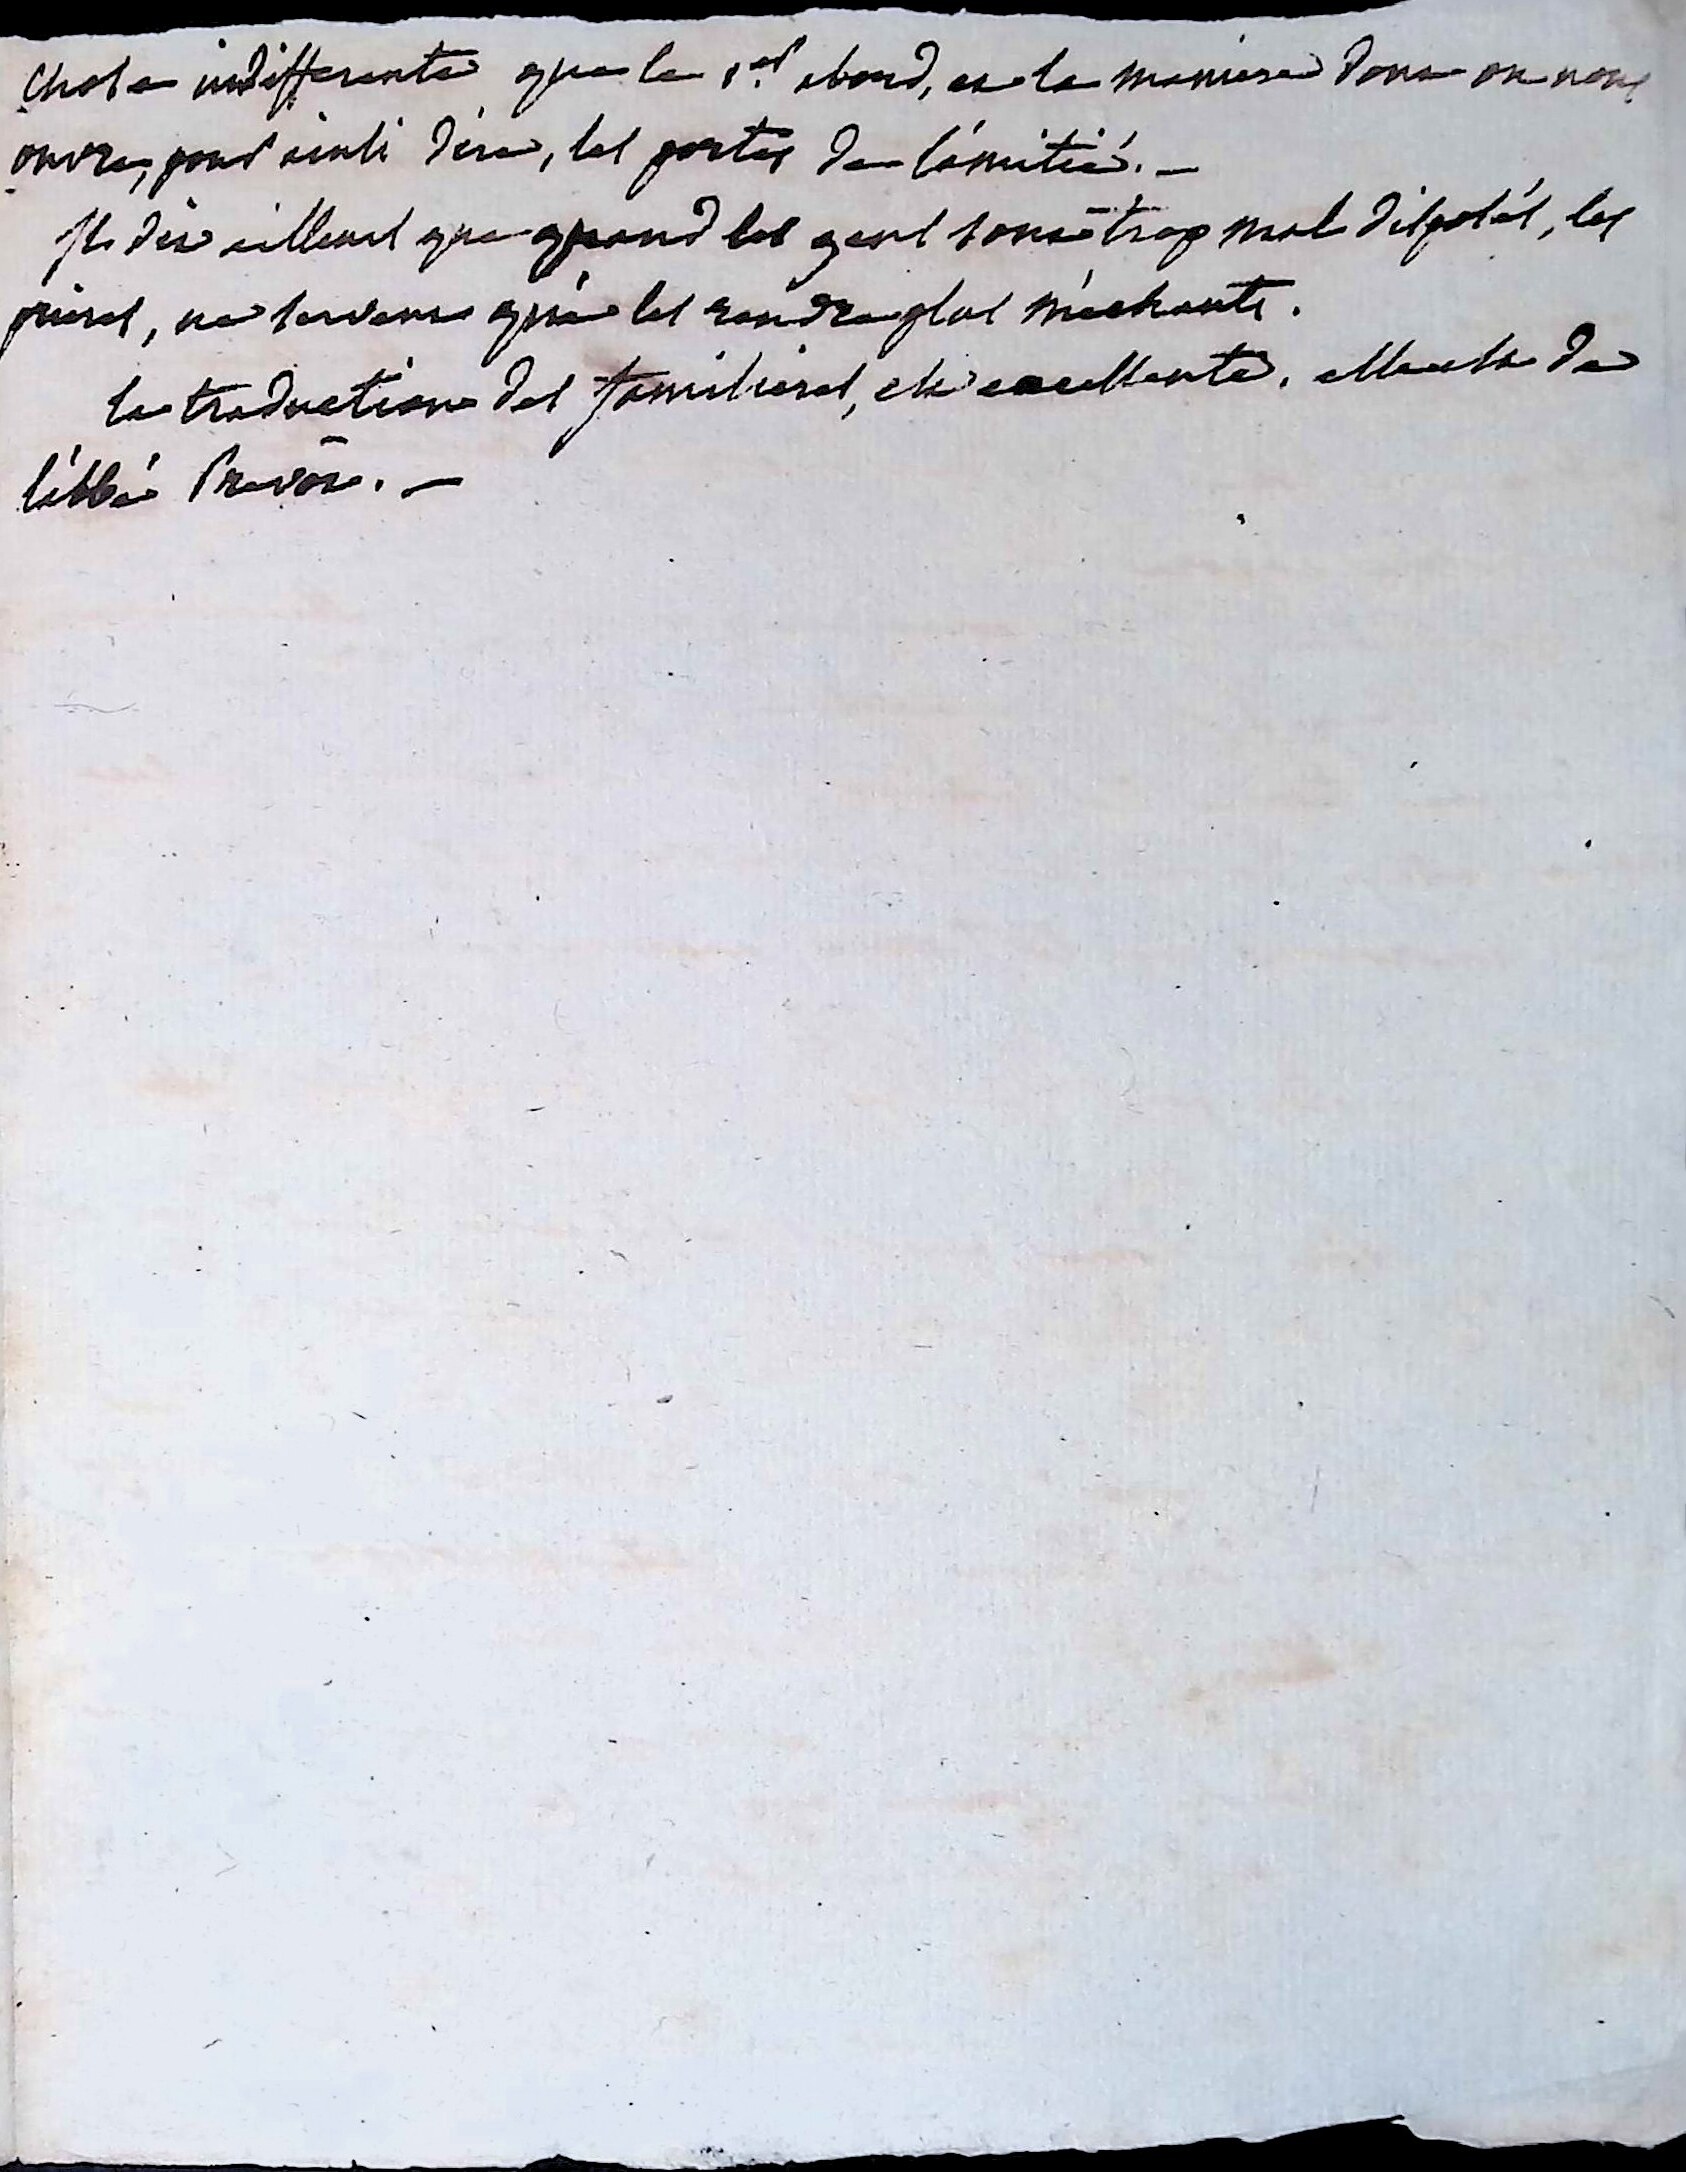 chose indifferente que le 1.er abord, et la maniere dont on nous
ouvre, pour ainsi dire, les portes de l'amitié. –
Il dit ailleurs que quand les gens sont trop mal disposés, les
prieres, ne servent qu'à les rendre plus méchants.
la traduction des familieres, est excellente. elle est de
l'abbé Prevôt. –